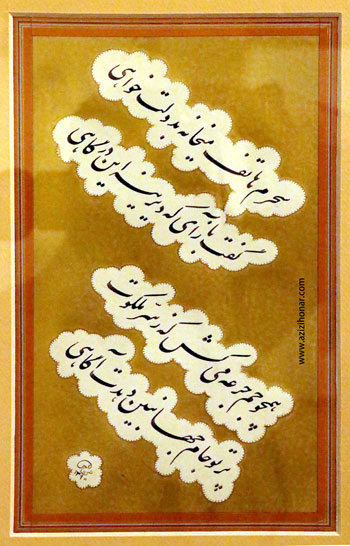 سحرم هاتف میخانه بدولت خواهی
گفت بازآی که دیرینه این درگاهی
همچو جم جرعه می کش که ز سر ملکوت
پرتو جام جهان بین دهدت آگاهی
www.azizihonar.com